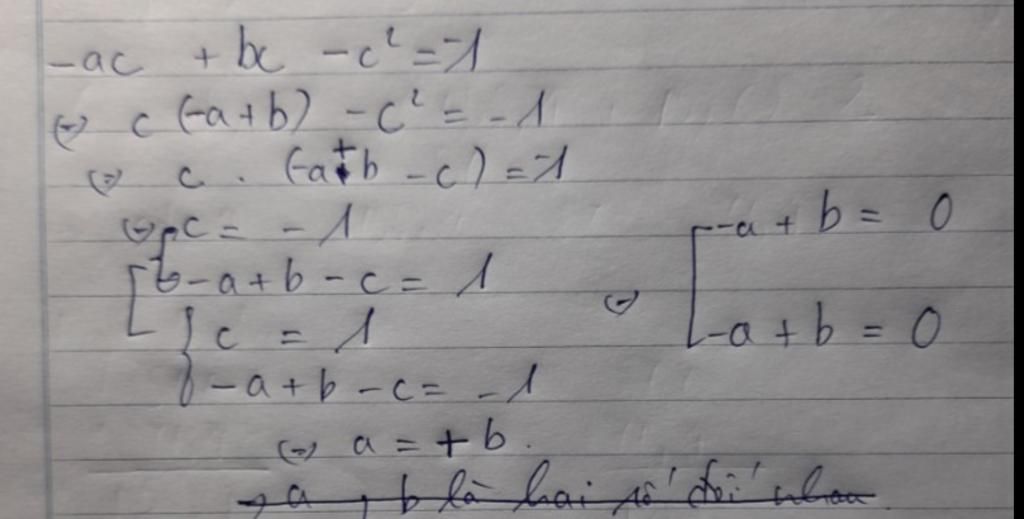 -ac + bc - c² = -1
⇔ c (-a+b) - c² = -1
⇔ c . (-a+b - c) = -1
⇔ c = -1
-a + b - c = 1
c = 1
-a + b - c = -1
⇔ -a + b = 0
-a + b = 0
⇔ a = + b.
→ a, b là hai số đối nhau